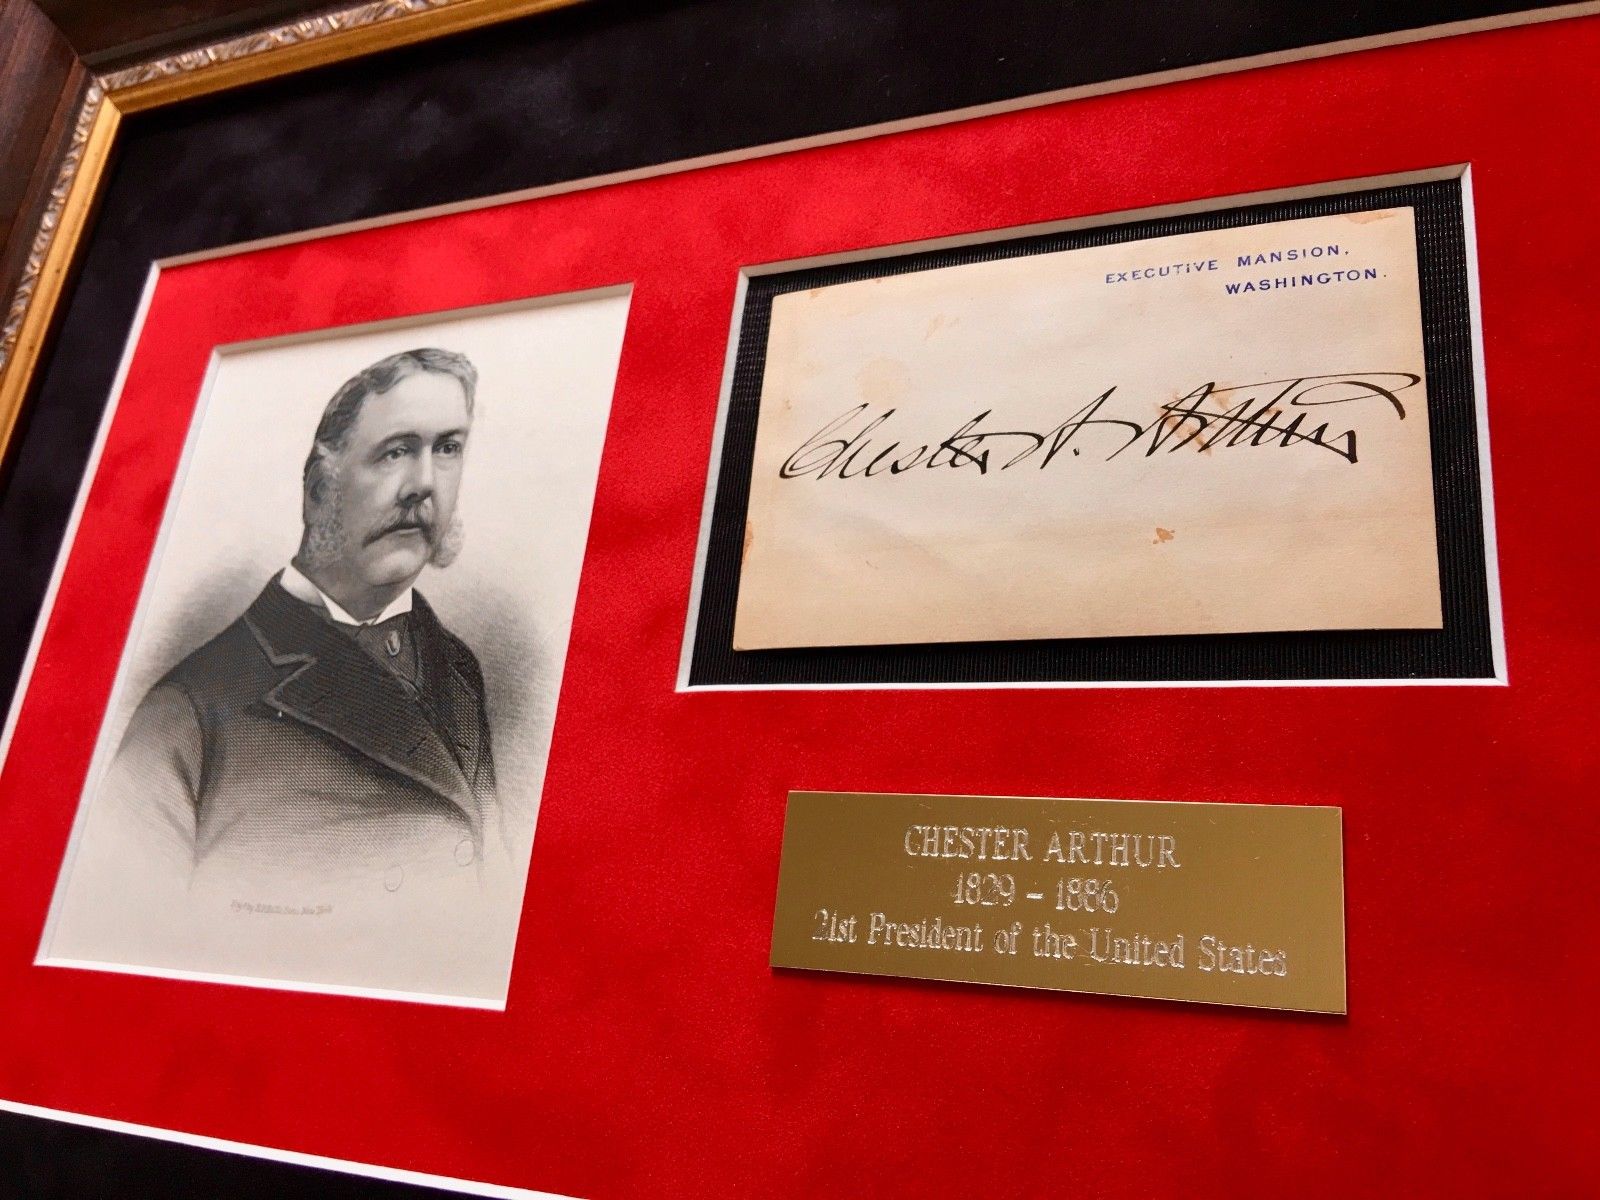 EXECUTIVE MANSION,
WASHINGTON.
Chester A. Arthur
CHESTER ARTHUR
1829 - 1886
21st President of the United States